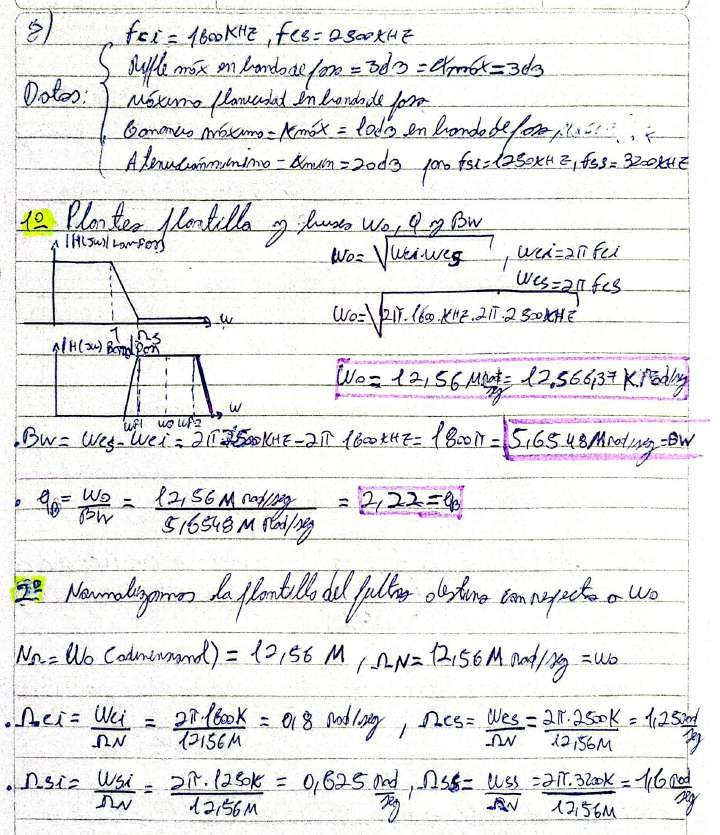 8)
Datos:
fci = 1600 KHZ, fcs = 2500 KHZ
Ripple máx en banda de paso = 3dB = αmáx = 3dB
Máximo planicidad en banda de paso
Ganancia máxima = Kmáx = 10dB en banda de paso
Atenuación mínimo = αmin = 20dB para fsi = 1250KHZ, fss = 3200KHZ
1º Plantea plantilla y buses Wo, Q y BW
|H(Jω)| Low Pass
1 Ωs W
Wo = √Wci.Wcs , Wci = 2π fci
Wcs = 2π fcs
Wo = √2π.1600.KHZ.2π.2500KHZ
|H(Jω)| Band Pass
WP1 Wo WP2 W
Wo = 12,56 M rad/seg = 12.566,37 K Rad/seg
. BW = Wcs - Wci = 2π 2500KHZ - 2π 1600KHZ = 1800π = 5,6548 M rad/seg = BW
. qB = Wo/BW = 12,56 M rad/seg / 5,6548 M Rad/seg = 2,22 = qB
2º Normalizamos la plantilla del filtro destino con respecto a Wo
NΩ = Wo (adimensional) = 12,56 M , ΩN = 12,56 M rad/seg = Wo
. Ωci = Wci/ΩN = 2π.1600K/12,56M = 0,8 rad/seg , Ωcs = Wcs/ΩN = 2π.2500K/12,56M = 1,25 rad/seg
. Ωsi = Wsi/ΩN = 2π.1250K/12,56M = 0,625 rad/seg , Ωss = Wss/ΩN = 2π.3200K/12,56M = 1,6 rad/seg